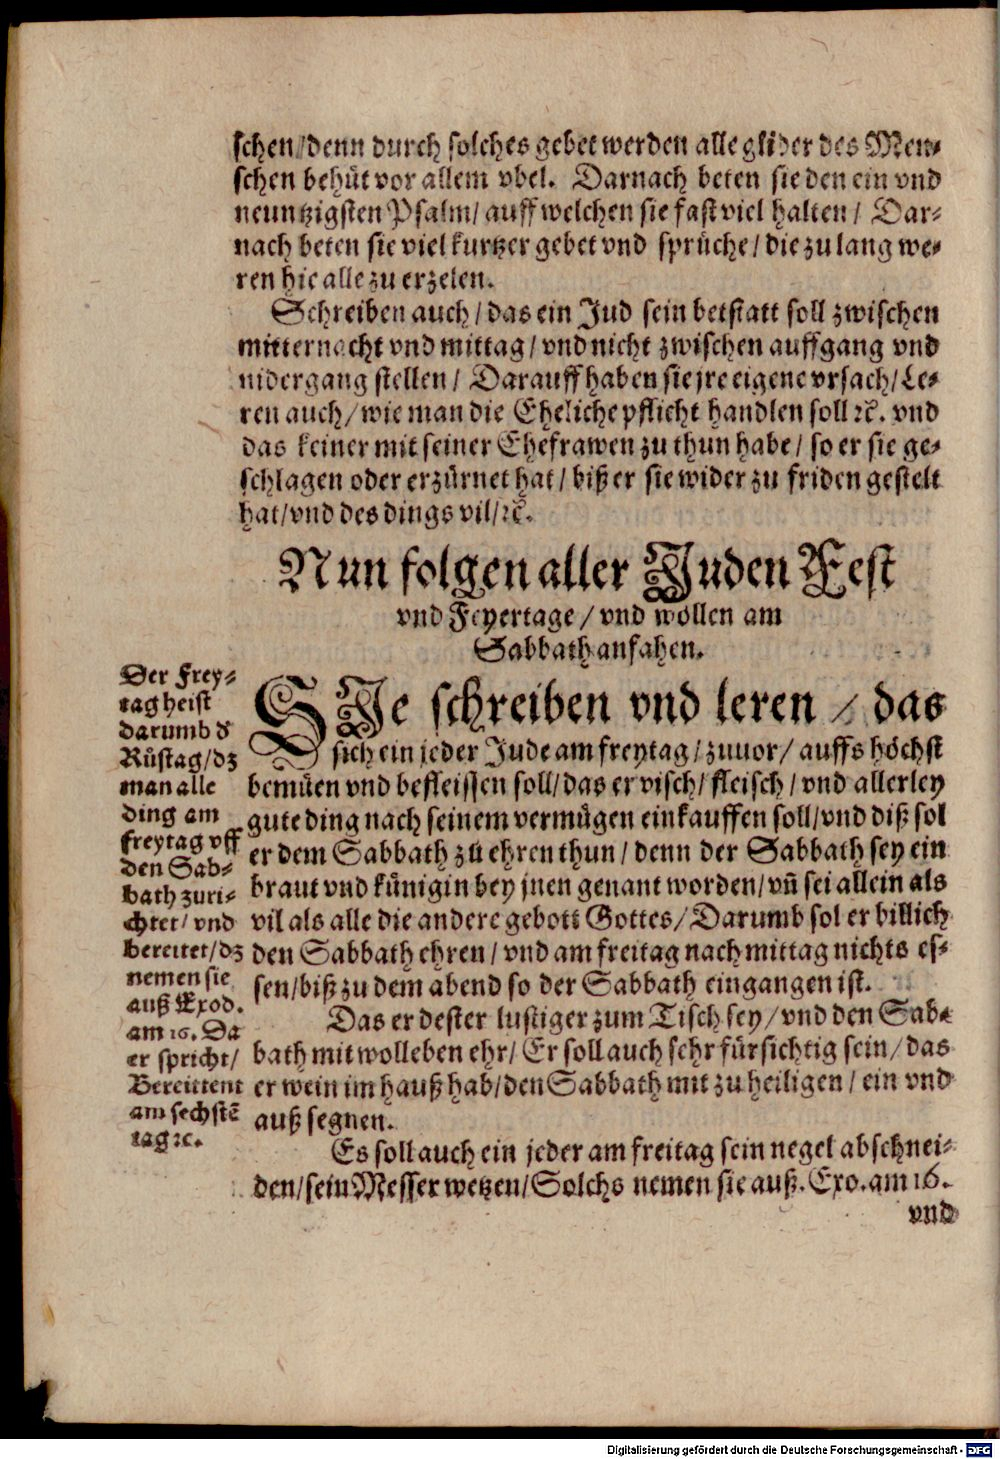 schen/denn durch solches gebet werden alle glider des Men⸗
schen behüt vor allem vbel. Darnach beten sie den ein vnd
neuntzigsten Psalm/ auff welchen sie fast viel halten/ Dar⸗
nach beten sie viel kurtzer gebet vnd sprüche/ die zu lang we⸗
ren hie alle zu erzelen.
Schreiben auch/ das ein Jud sein betstatt soll zwischen
mitternacht vnd mittag/ vnd nicht zwischen auffgang vnd
nidergang stellen/ Darauff haben sie jre eigene vrsach/ Le⸗
ren auch/ wie man die Eheliche pflicht handlen soll ꝛc. vnd
das keiner mit seiner Ehefrawen zu thun habe/ so er sie ge⸗
schlagen oder erzürnet hat/ biß er sie wider zu friden gestelt
hat/vnd des dings vil/ꝛc.
Nun folgen aller Juden Fest
vnd Feyertage/ vnd wöllen am
Sabbath anfahen.
SJe schreiben vnd leren/ das
sich ein jeder Jude am freytag/ zuuor/ auffs höchst
bemüen vnd befleissen soll/das er visch/ fleisch/ vnd allerley
gute ding nach seinem vermügen einkauffen soll/vnd diß sol
er dem Sabbath zů ehren thun/ denn der Sabbath sey ein
braut vnd künigin bey jnen genant worden/ vñ sei allein als
vil als alle die andere gebott Gottes/ Darumb sol er billich
den Sabbath ehren/ vnd am freitag nach mittag nichts es⸗
sen/biß zu dem abend so der Sabbath eingangen ist.
Das er dester lustiger zum Tisch sey/ vnd den Sab⸗
bath mit wolleben ehr/ Er soll auch sehr fürsichtig sein/ das
er wein im hauß hab/den Sabbath mit zu heiligen/ ein vnd
auß segnen.
Es soll auch ein jeder am freitag sein negel abschnei⸗
den/sein Messer wetzen/ Solchs nemen sie auß. Exo. am 16.
vnd
Der Frey⸗
tag heist
darumb ď
Rüstag/dz
man alle
ding am
freytag vff
den Sab⸗
bath zuri⸗
chtet/ vnd
bereitet/dz
nemen sie
auß Exod.
am 16. Da
er spricht/
Bereittent
am sechstẽ
tag ꝛc.
Digitalisierung gefördert durch die Deutsche Forschungsgemeinschaft - DFG